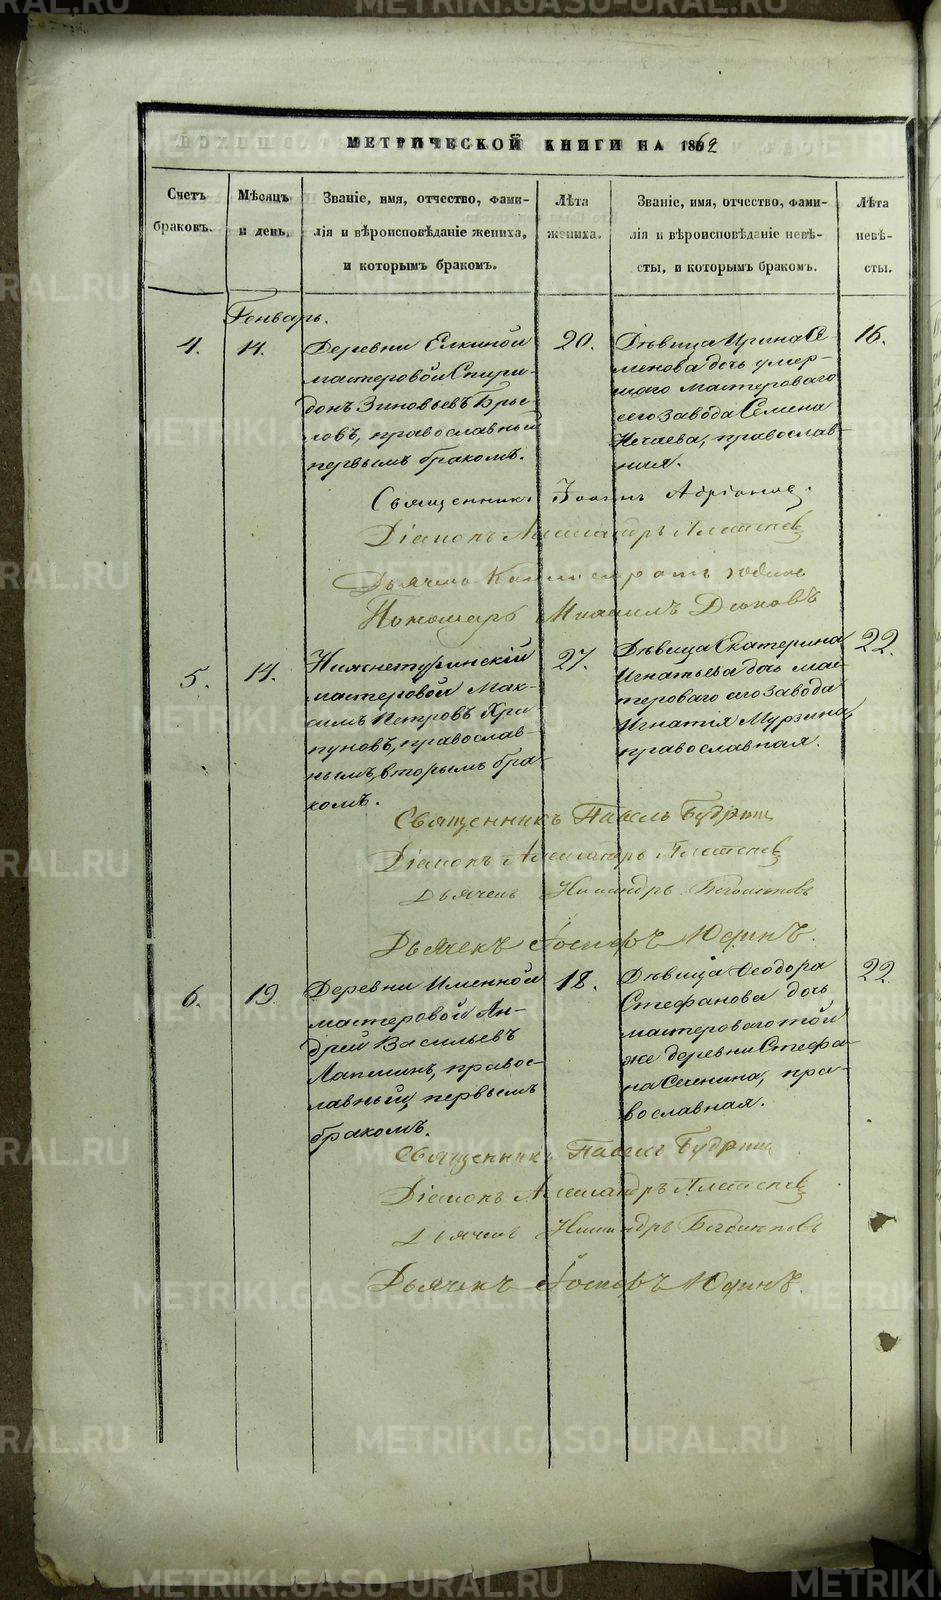 МЕТРИЧЕСКОЙ КНИГИ НА 1862
Счетъ браковъ.
Мѣсяцъ и день.
Званіе, имя, отчество, фами-
лія и вѣроисповѣданіе жениха,
и которымъ бракомъ.
Лѣта жениха.
Званіе, имя, отчество, фами-
лія и вѣроисповѣданіе невѣ-
сты, и которымъ бракомъ.
Лѣта невѣ-
сты.
Генварь.
4.
14.
Деревни Елкиной
мастеровой Спири-
донъ Зиновьевъ Бры-
ловъ, православный
первымъ бракомъ.
20.
Дѣвица Ирина Се
менова дочь умер-
шаго мастероваго
сего завода Семена
Нечаева, православ-
ная.
16.
Священникъ Іоаннъ Адріановъ.
Діаконъ Александръ
Пономарь Михаилъ
5.
14.
Нижнетуринскій
мастеровой Мак-
симъ Петровъ Хри
пуновъ, православ-
нымъ, вторымъ бра-
комъ.
27.
Дѣвица Екатерина
Игнатьева дочь мас-
тероваго сего завода
Игнатія Мурзина,
православная.
22.
Священникъ Павелъ
Діаконъ Александръ
Дьячекъ
Дьячекъ Іосифъ Юдинъ.
6.
19.
Деревни Именной
мастеровой Ан-
дрей Васильевъ
православный, первымъ
бракомъ.
18.
Дѣвица Ѳеодора
Стефанова дочь
мастероваго той
же деревни Стефа-
на пра-
вославная.
22.
Священникъ Павелъ
Діаконъ Александръ
Дьячекъ
Дьячекъ Іосифъ Юдинъ.
METRIKI.GASO-URAL.RU